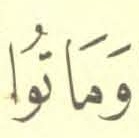 وَمَاتُوا